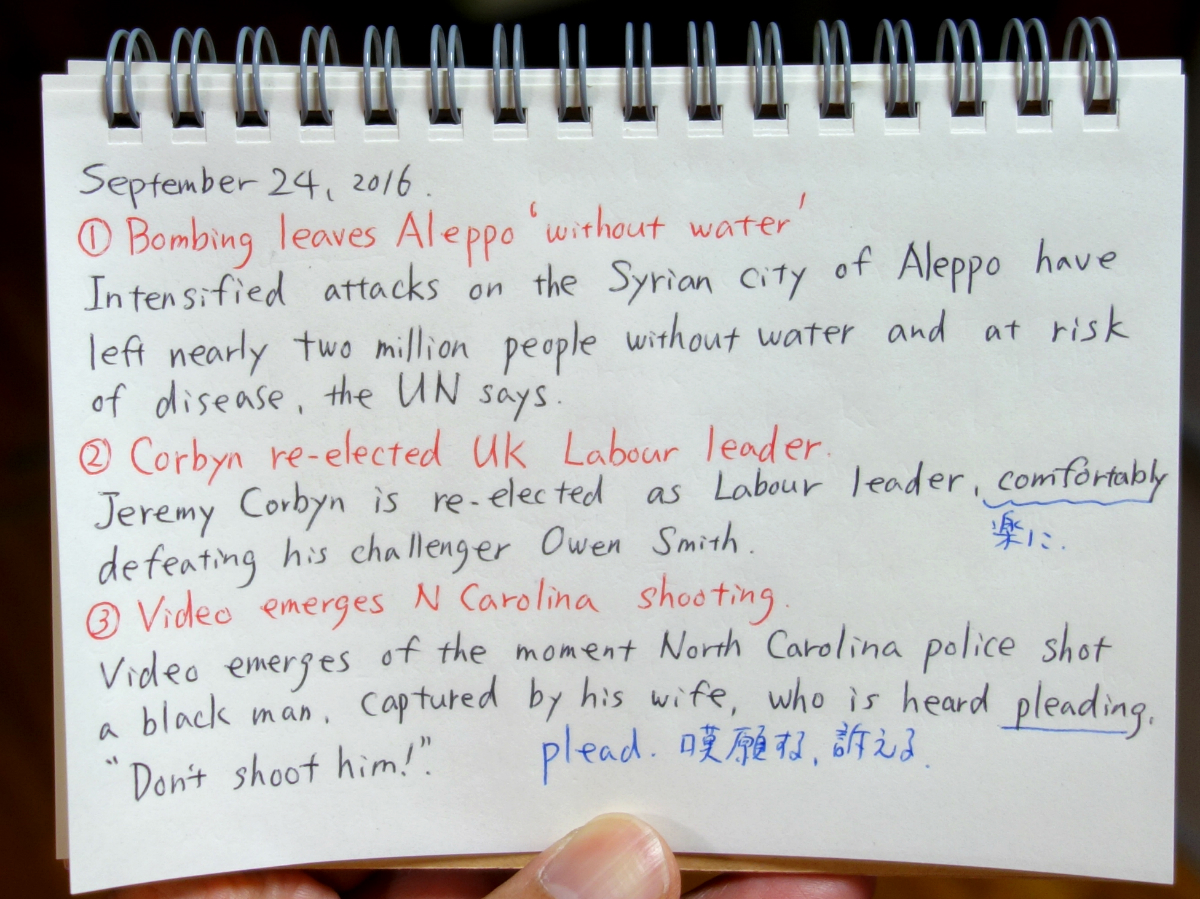 September 24, 2016.
① Bombing leaves Aleppo 'without water'
Intensified attacks on the Syrian city of Aleppo have
left nearly two million people without water and at risk
of disease, the UN says.
② Corbyn re-elected UK Labour leader.
Jeremy Corbyn is re-elected as Labour leader, comfortably
楽に.
defeating his challenger Owen Smith.
③ Video emerges N Carolina shooting.
Video emerges of the moment North Carolina police shot
a black man, captured by his wife, who is heard pleading,
"Don't shoot him!".
plead. 嘆願する,訴える.